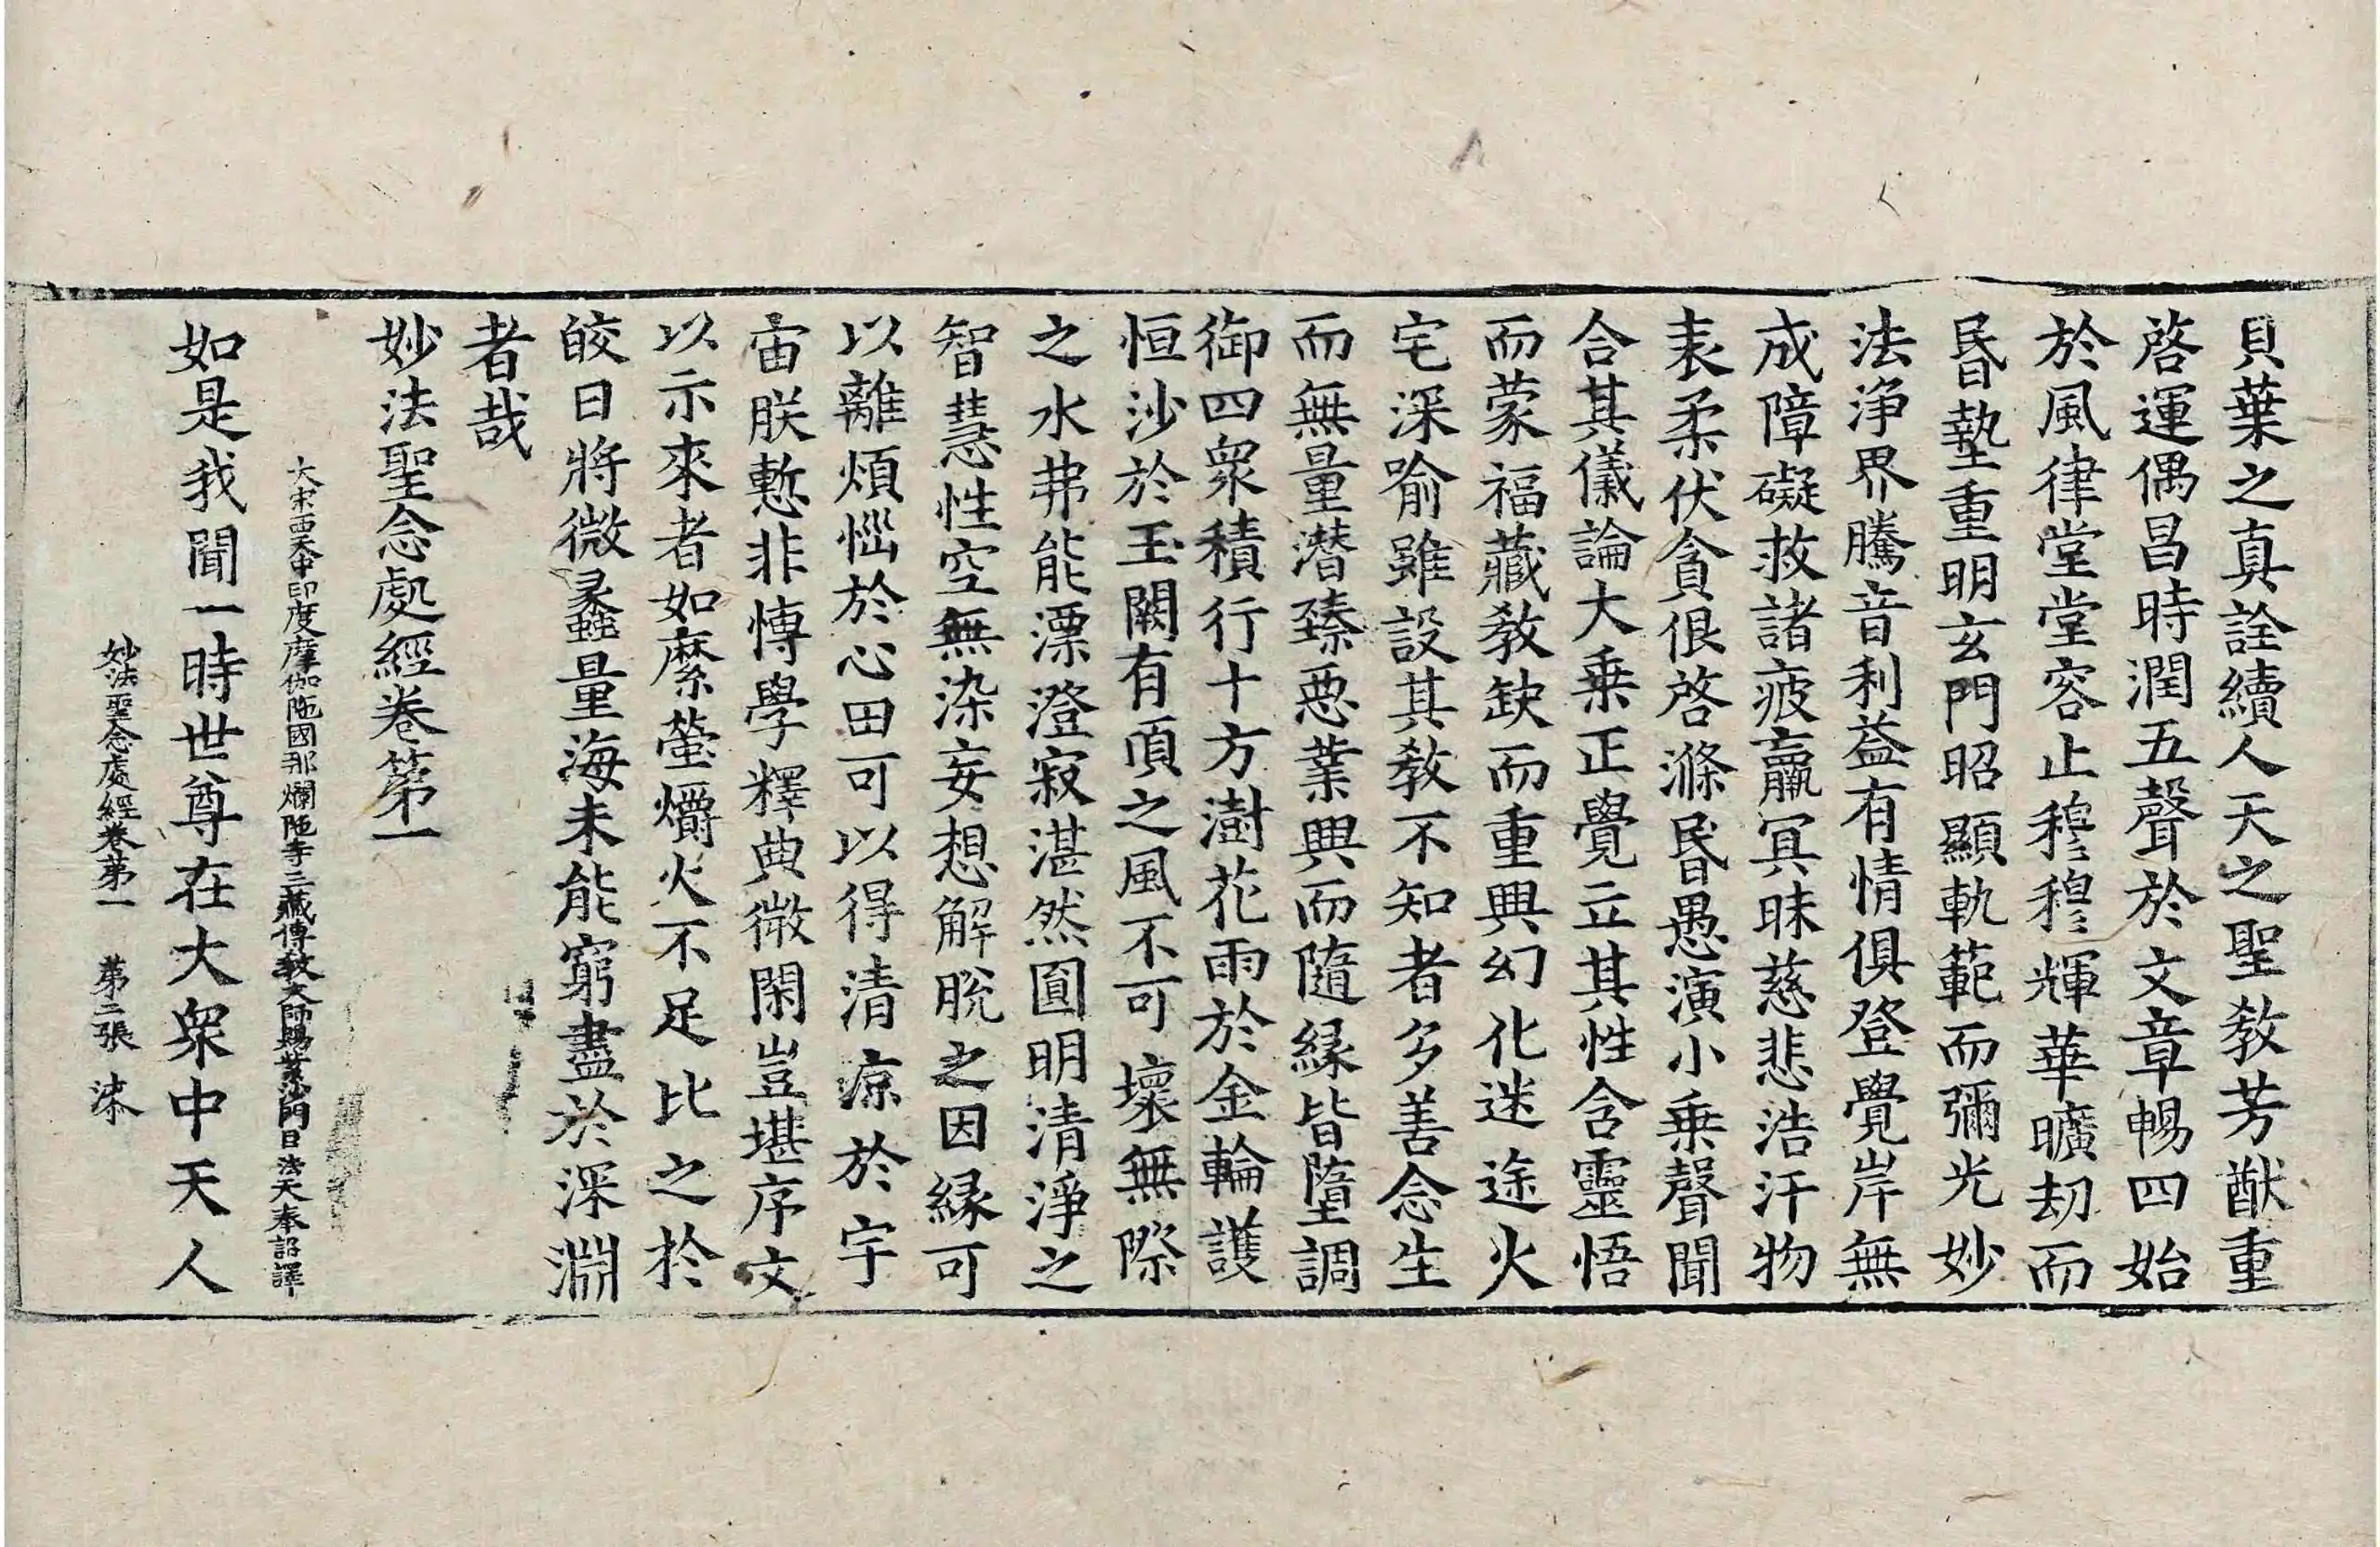 貝葉之真詮續人天之聖教芳猷重
啓運偶昌時潤五聲於文章暢四始
於風律堂堂容止穆穆輝華曠刧而
昬墊重明玄門昭顯軌範而彌光妙
法淨界騰音利益有情俱登覺岸無
成障礙救諸疲羸冥昧慈悲浩汗物
表柔伏貪佷啓滌昬愚演小乗聲聞
合其儀論大乗正覺立其性含靈悟
而蒙福藏教缺而重興幻化迷途火
宅深喻雖設其教不知者多善念生
而無量潜臻惡業興而隨緣皆墮調
御四衆積行十方澍花雨於金輪護
恒沙於玉闕有頂之風不可壞無際
之水弗能漂澄寂湛然圓明清淨之
智慧性空無染妄想解脫之因緣可
以離煩惱於心田可以得清凉於宇
宙朕慙非愽學釋典微閑豈堪序文
以示來者如縻螢爝火不足比之於
皎日將微蠡量海未能窮盡於深淵
者哉
妙法聖念處經卷第一
大宋西天中印度摩伽陁國那爛陁寺三藏傳教大師賜紫沙門臣法天奉詔譯
如是我聞一時世尊在大衆中天人
妙法聖念處經卷苐一　苐二張　柒